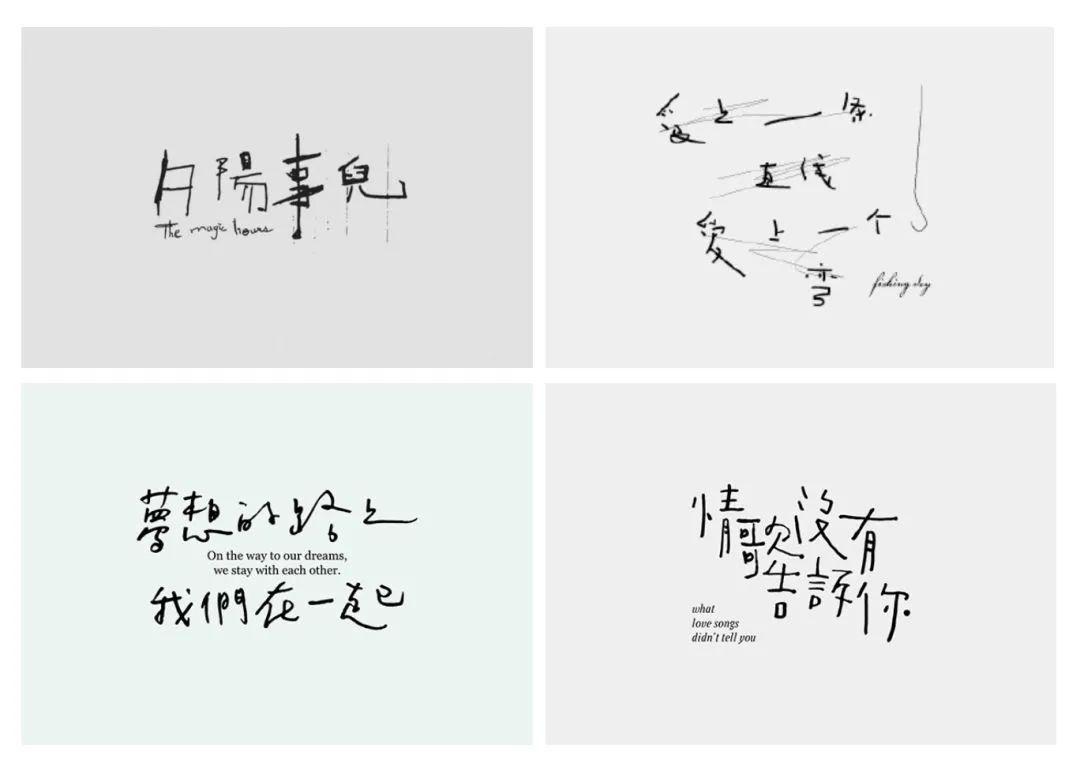 陽事兒
The magic hours
愛上一条
直线
愛上一个
弯
fishing day
夢想的路上
On the way to our dreams,
we stay with each other.
我們在一起
情歌沒有
告訴你
what
love songs
didn't tell you